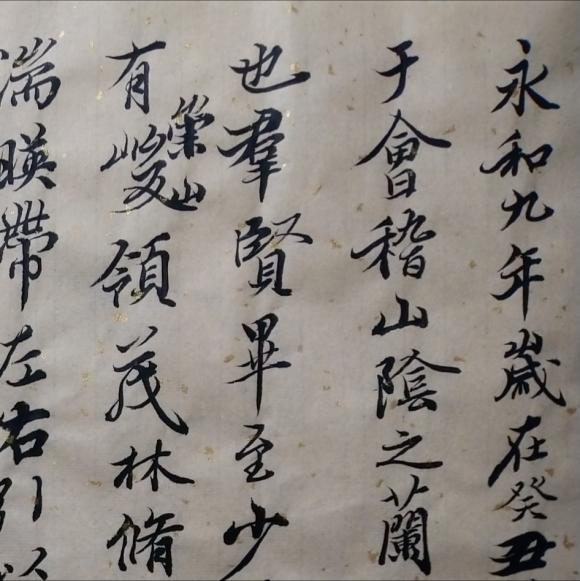 永和九年歲在癸丑
于會稽山陰之蘭
也羣賢畢至少
有崇山峻領茂林脩
湍暎帶左右引以